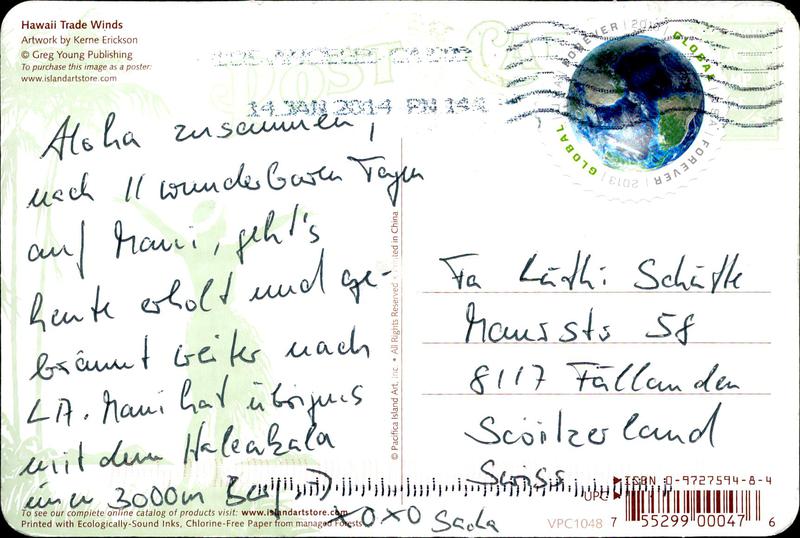 Hawaii Trade Winds
Artwork by Kerne Erickson
© Greg Young Publishing
To purchase this image as a poster:
www.islandartstore.com
POST CARD
LOS ANGELES CA
14 JAN 2014 PM 14
FOREVER | 2013 GLOBAL
FOREVER | 2013 | GLOBAL
Aloha zusammen,
nach 11 wunderbaren Tagen
auf Maui, geht's
heute erholt und ge-
bräunt weiter nach
LA. Maui hat übrigens
mit dem Haleakala
einen 3000m Berg :-)
XOXO
© Pacifica Island Art, Inc. • All Rights Reserved • Printed in China
Fa Lüthi Schäfte
8117 Fällanden
Switzerland
Swiss
ISBN 0-9727594-8-4
UPC
7 55299 00047 6
VPC1048
To see our complete online catalog of products visit: www.islandartstore.com
Printed with Ecologically-Sound Inks, Chlorine-Free Paper from managed Forests